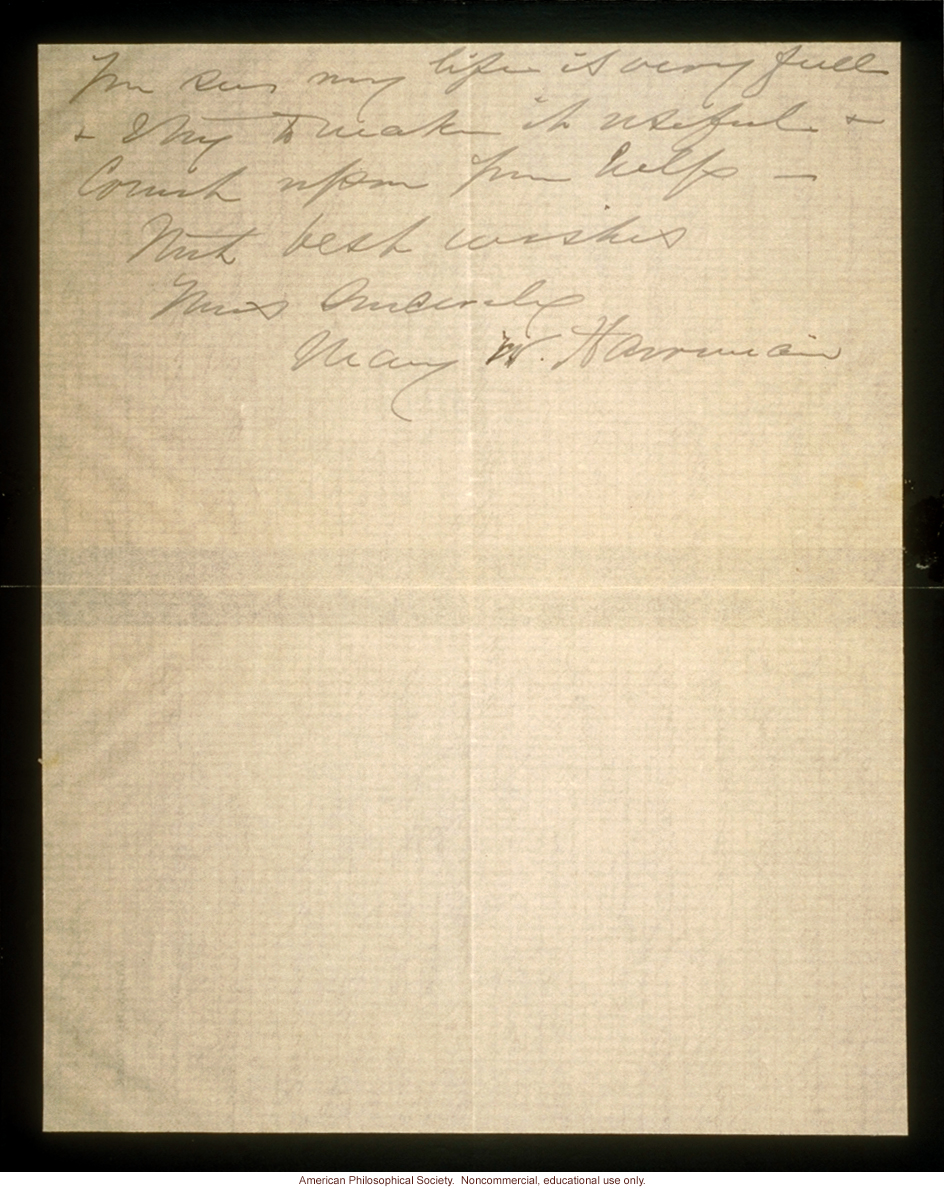 You see my life is very full
& I try to make it useful &
Count upon your help —
With best wishes
Yours Sincerely
Mary W. Harriman
American Philosophical Society. Noncommercial, educational use only.